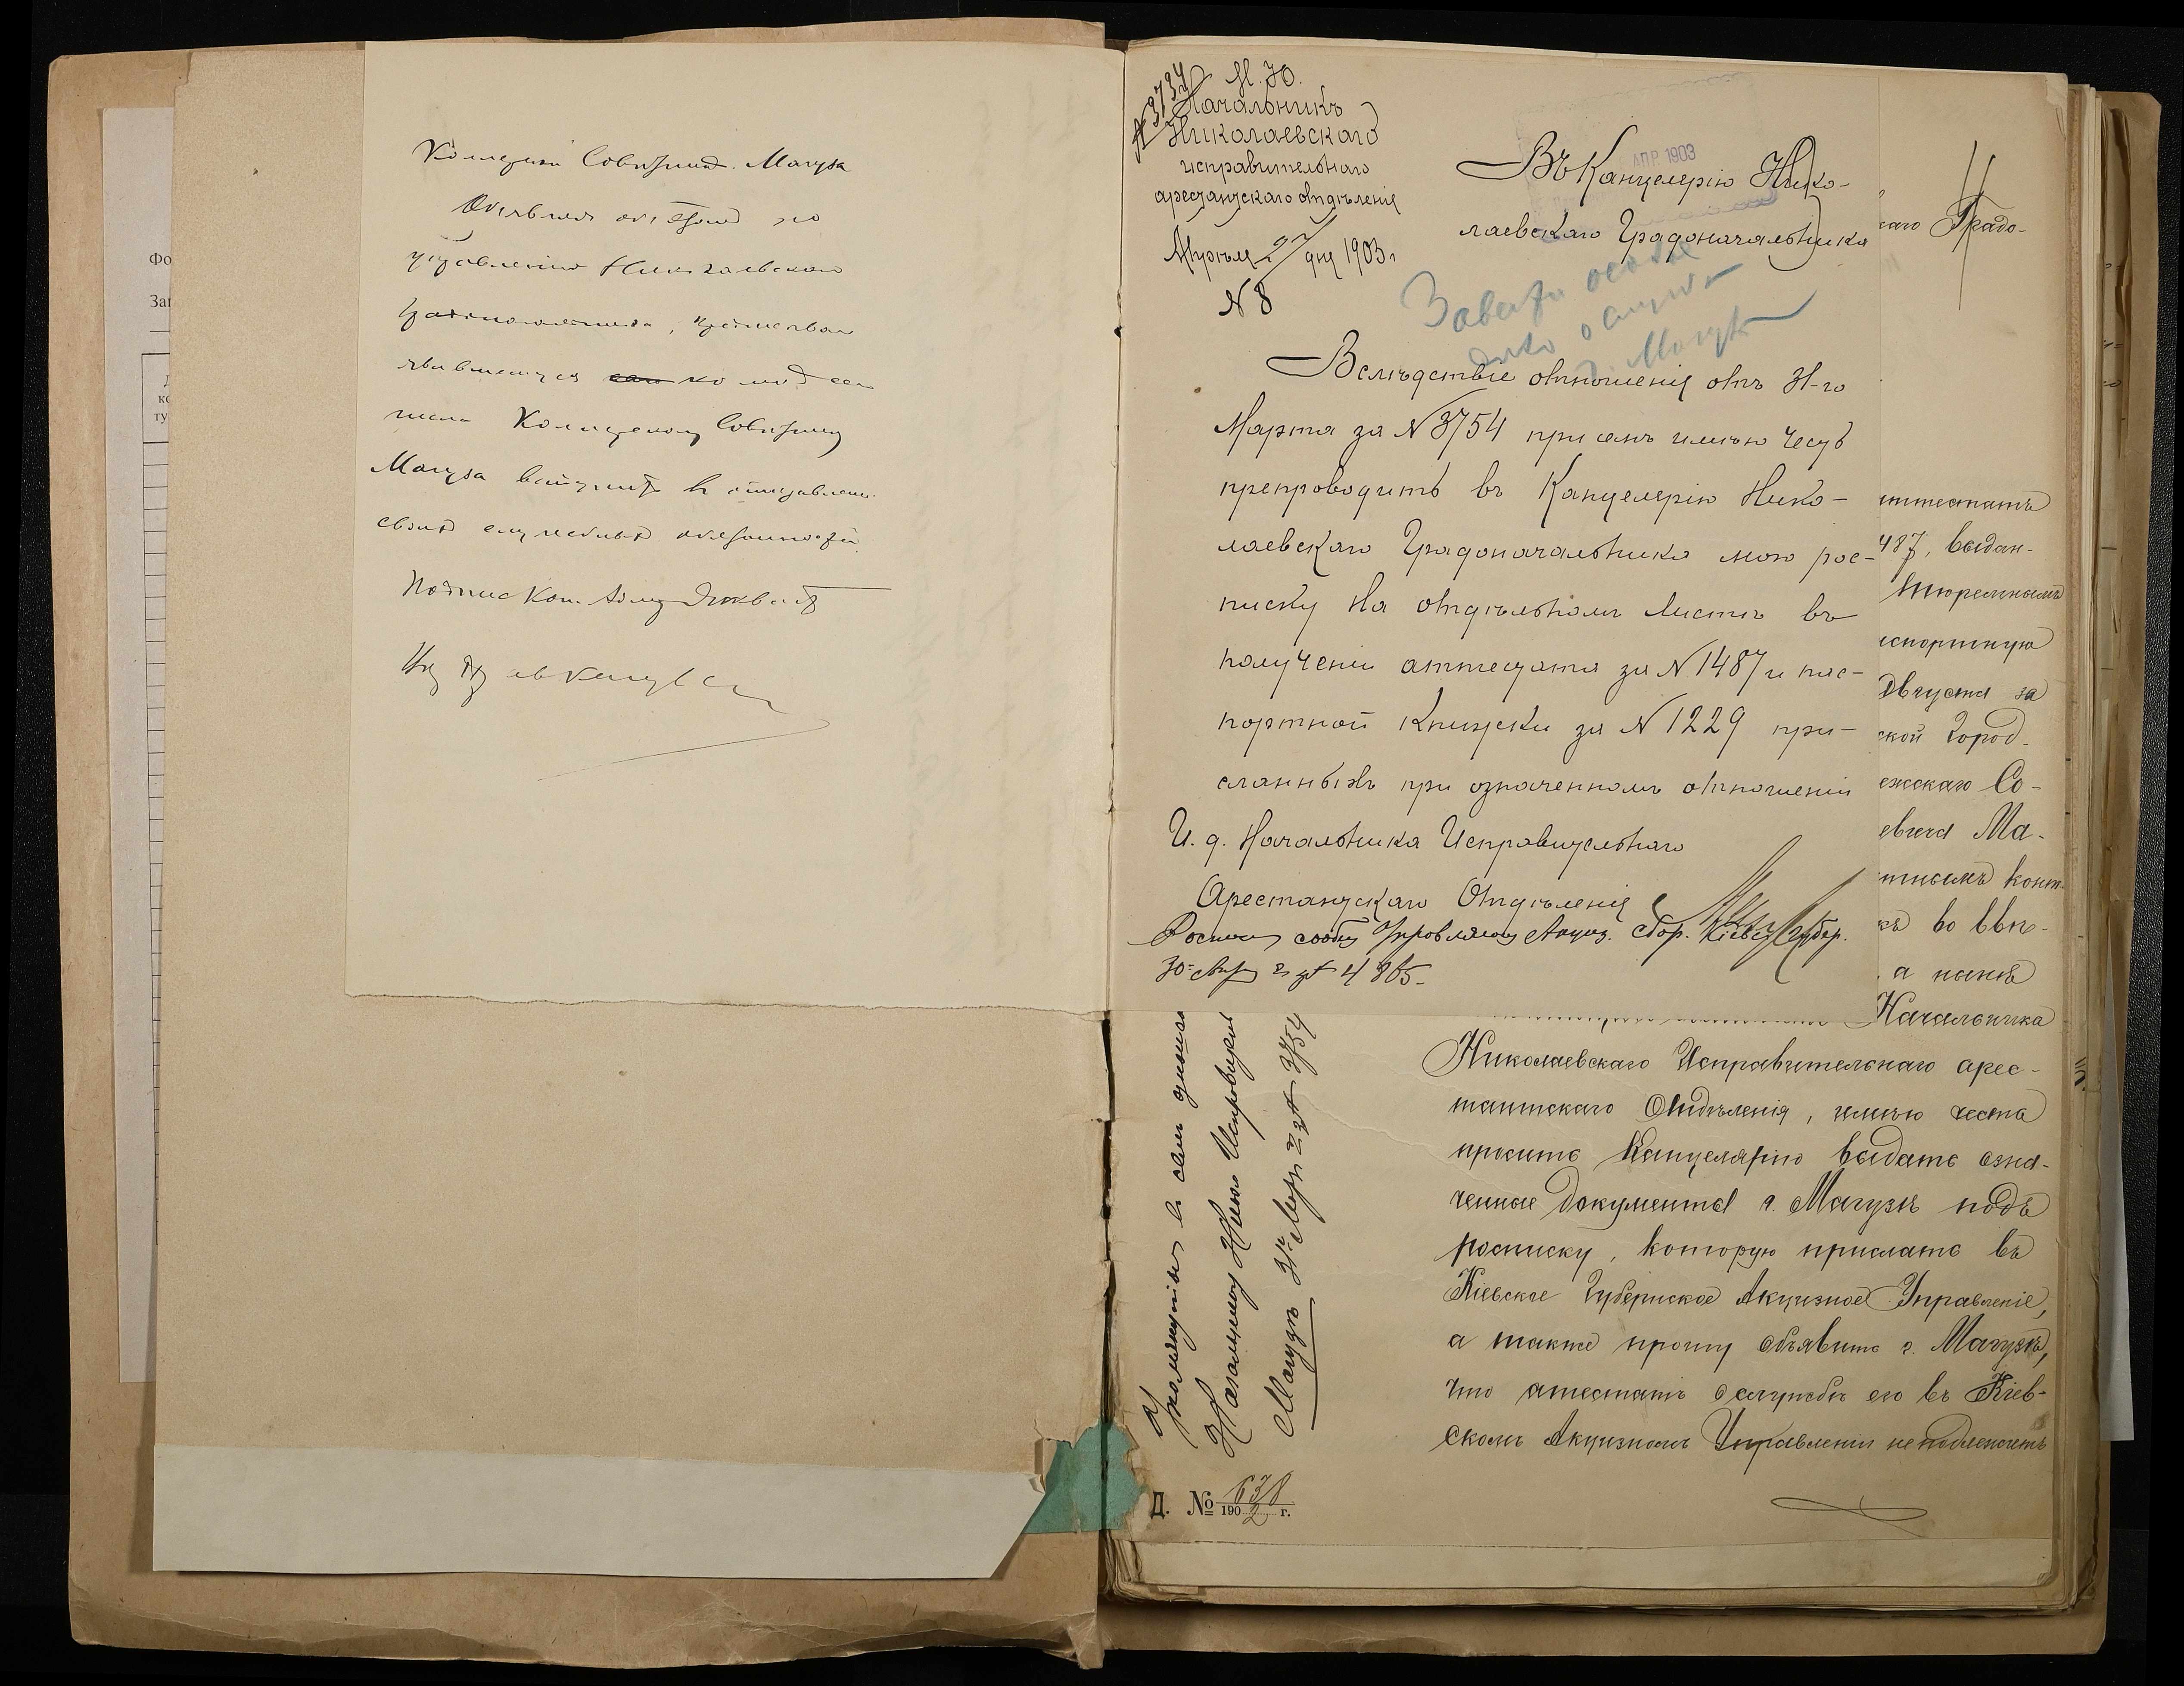 Фо
Заг
Магуза
Объявляя объ этомъ по
управленію Николаевскаго
градоначальника,
явившемуся ко мнѣ сего
числа Коллежскому Совѣтнику
Магуза вступить въ отправленіе
своихъ служебныхъ обязанностей.
№ 3734
М. Ю.
Начальникъ
Николаевскаго
исправительнаго
арестантскаго отдѣленія
Апрѣля 27 дня 1903 г
N 8
АПР 1903
Въ Канцелярію Нико-
лаевскаго Градоначальника
Завести особое
дѣло о службѣ
г. Магузы
Вслѣдствіе отношенія отъ 31-го
Марта за N 3754 при семъ имѣю честь
препроводить въ Канцелярію Нико-
лаевскаго Градоначальника мою рос-
писку на отдѣльномъ листѣ въ
полученіи аттестата за N 1487 и пас-
портной книжки за N 1229 при-
сланныхъ при означенномъ отношеніи
И. д. Начальника Исправительнаго
Арестантскаго Отдѣленія
Управляющ Акциз. сбор. Кіевск Губер.
30 4865.
каго Градо-
ттестатъ
487, выдан-
тюремнымъ
спортную
Августа за
ской Город-
ежскаго Со-
евича Ма-
тнымъ конт-
въ во ввѣ-
а нынѣ
Начальника
Николаевскаго Исправительнаго арес-
тантскаго Отдѣленія, имѣю честь
просить Канцелярію выдать озна-
ченные документы г. Магузѣ подъ
росписку, которую прислать въ
Кіевское Губернское Акцизное Управленіе,
а также прошу объявить г. Магузѣ,
что аттестатъ о службѣ его въ Кіев-
скомъ Акцизномъ Управленіи не подлежитъ
Начальнику Никол Исправицел
Магузѣ 31 Март за № 3754
Д. № 638
1902 г.